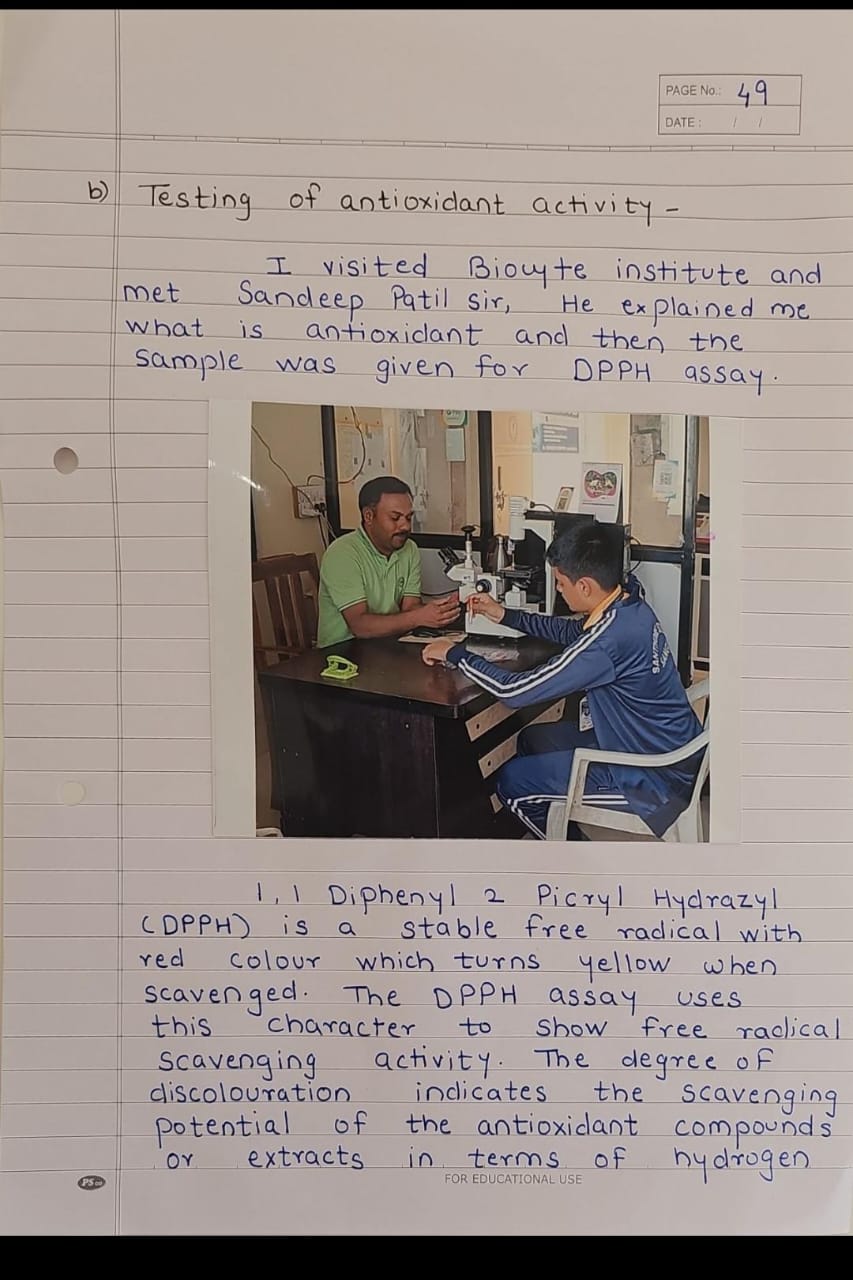 PAGE No.: 49
DATE : / /
b) Testing of antioxidant activity -
I visited Biocyte institute and
met Sandeep Patil sir, He explained me
what is antioxidant and then the
sample was given for DPPH assay.
1,1 Diphenyl 2 Picryl Hydrazyl
(DPPH) is a stable free radical with
red colour which turns yellow when
scavenged. The DPPH assay uses
this character to show free radical
scavenging activity. The degree of
discolouration indicates the scavenging
potential of the antioxidant compounds
or extracts in terms of hydrogen
PS
FOR EDUCATIONAL USE